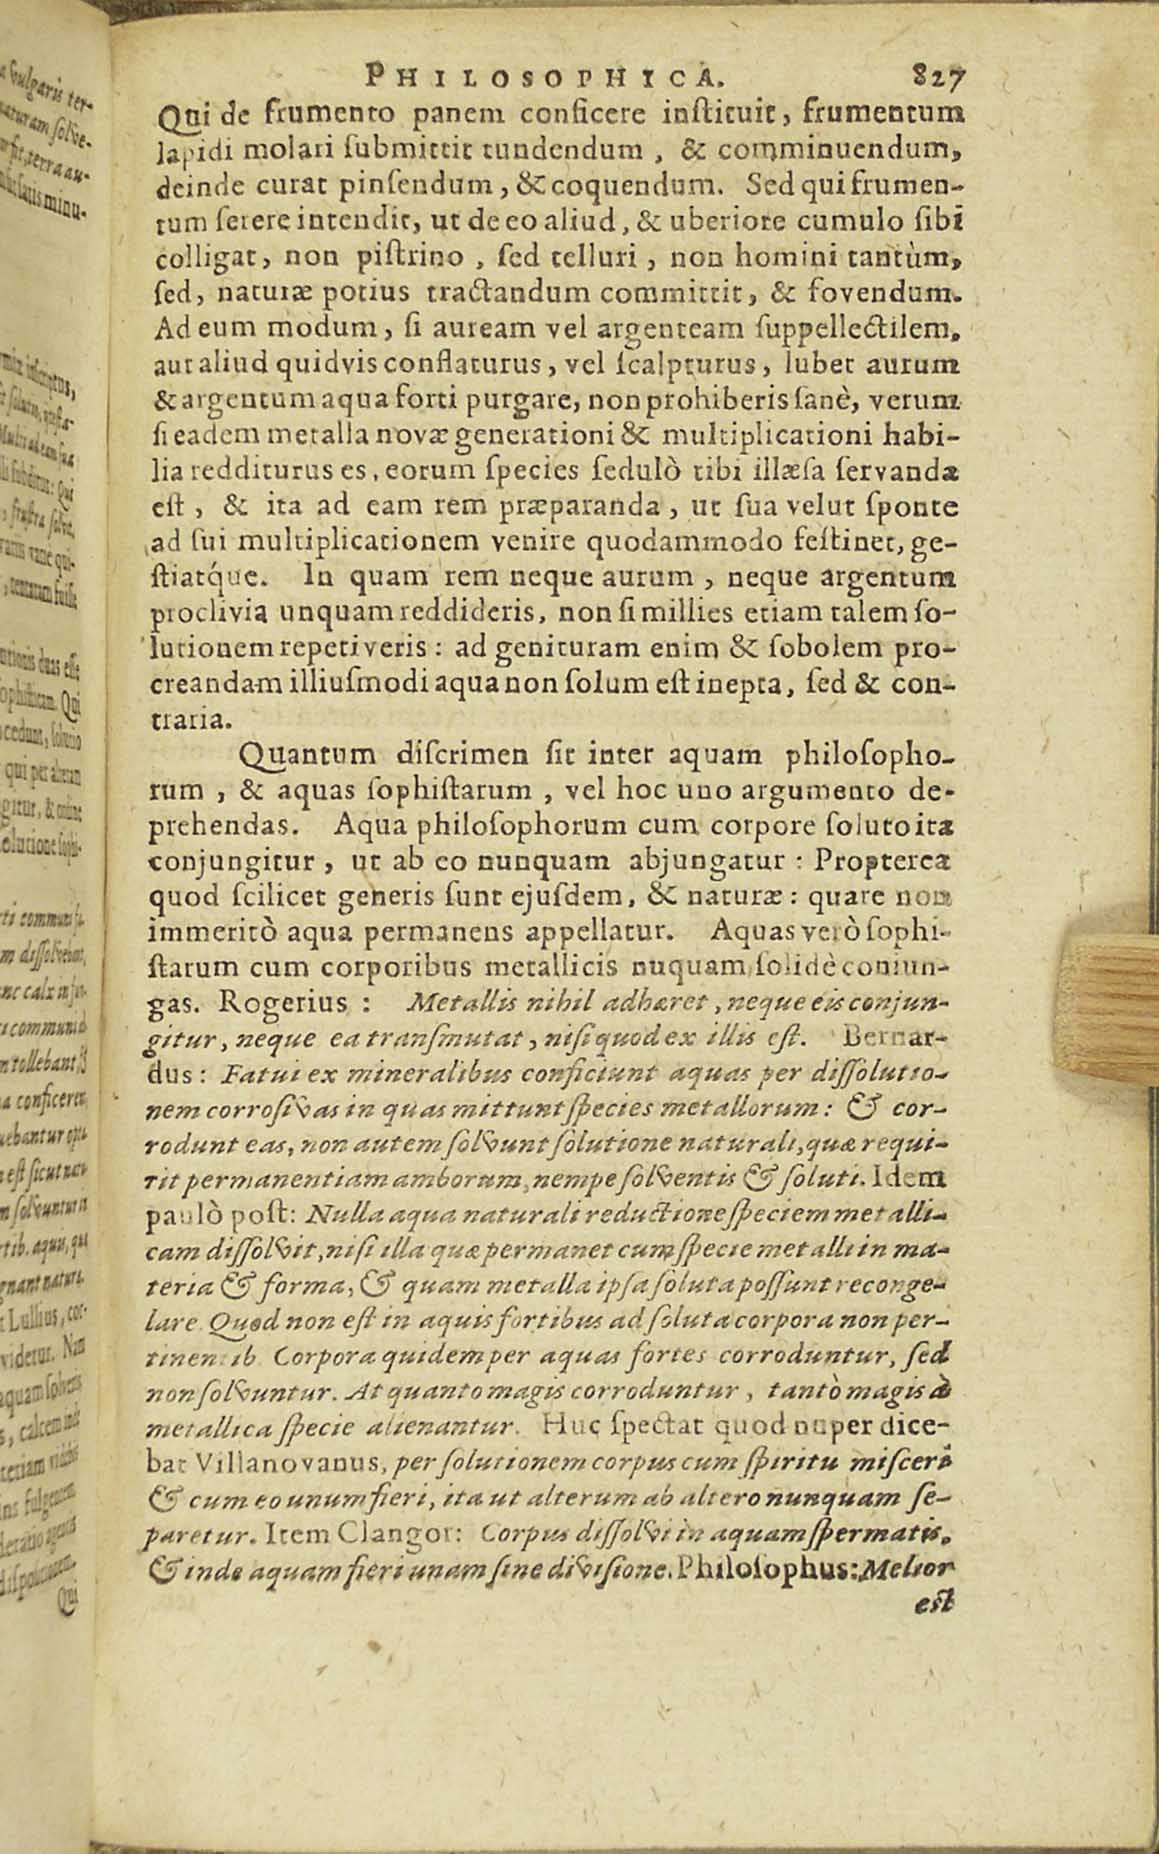 PHILOSOPHICA. 827
Qui de frumento panem conficere instituit, frumentum
lapidi molari submittit tundendum, & comminuendum,
deinde curat pinsendum, & coquendum. Sed qui frumen-
tum serere intendit, ut de eo aliud, & uberiore cumulo sibi
colligat, non pistrino, sed telluri, non homini tantùm,
sed, naturæ potius tractandum committit, & fovendum.
Ad eum modum, si auream vel argenteam suppellectilem,
aut aliud quidvis conflaturus, vel scalpturus, lubet aurum
& argentum aqua forti purgare, non prohiberis sanè, verum
si eadem metalla novæ generationi & multiplicationi habi-
lia redditurus es, eorum species sedulò tibi illæsa servanda
est, & ita ad eam rem præparanda, ut sua velut sponte
ad sui multiplicationem venire quodammodo festinet, ge-
stiatq́ue. In quam rem neque aurum, neque argentum
proclivia unquam reddideris, non si millies etiam talem so-
lutionem repetiveris: ad genituram enim & sobolem pro-
creandam illiusmodi aqua non solum est inepta, sed & con-
traria.
Quantum discrimen sit inter aquam philosopho-
rum, & aquas sophistarum, vel hoc uno argumento de-
prehendas. Aqua philosophorum cum corpore soluto ita
conjungitur, ut ab eo nunquam abjungatur: Propterea
quod scilicet generis sunt ejusdem, & naturæ: quare non
immeritò aqua permanens appellatur. Aquas verò sophi-
starum cum corporibus metallicis nuquam solidè coniun-
gas. Rogerius: Metallis nihil adhæret, neque eis conjun-
gitur, neque ea transmutat, nisi quod ex illis est. Bernar-
dus: Fatui ex mineralibus conficiunt aquas per dissolutio-
nem corrosivas in quas mittunt species metallorum: & cor-
rodunt eas, non autem solvunt solutione naturali, quæ requi-
rit permanentiam amborum, nempe solventis & soluti. Idem
paulò post: Nulla aqua naturali reductione speciem metalli-
cam dissolvit, nisi illa quæ permanet cum specie metalli in ma-
teria & forma, & quam metalla ipsa soluta possunt reconge-
lare. Quod non est in aquis fortibus ad soluta corpora non per-
tinentib. Corpora quidem per aquas fortes corroduntur, sed
non solvuntur. At quanto magis corroduntur, tantò magis à
metallica specie alienantur. Huc spectat quod nuper dice-
bat Villanovanus, per solutionem corpus cum spiritu misceri
& cum eo unum fieri, ita ut alterum ab altero nunquam se-
paretur. Item Clangor: Corpus dissolvi in aquam spermatis,
& inde aquam fieri unam sine divisione. Philosophus: Melior
est